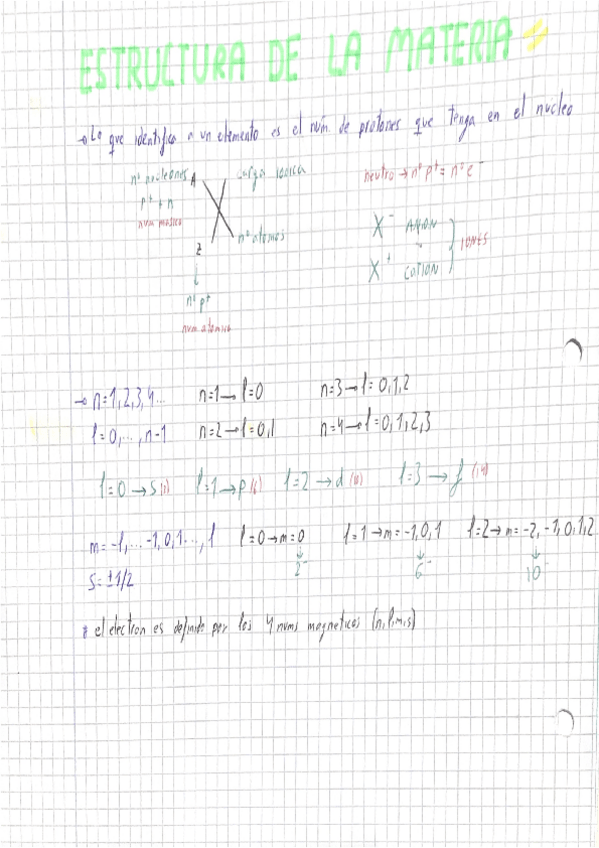 ESTRUCTURA DE LA MATERIA
→ Lo que identifica a un elemento es el núm de protones que tenga en el nucleo
nº nucleones A carga iónica neutro → nº p⁺ = nº e⁻
p⁺ + n
num masico X X⁻ ANION
Z nº atomos IONES
X⁺ CATION
↓
nº p⁺
num atomico
→ n=1,2,3,4... n=1 → l=0 n=3 → l=0,1,2
l=0,...,n-1 n=2 → l=0,1 n=4 → l=0,1,2,3
l=0 → s l=1 → p (6) l=2 → d (10) l=3 → f (14)
m=-l,...-1,0,1...,l l=0 → m=0 l=1 → m=-1,0,1 l=2 → m=-2,-1,0,1,2
↓ ↓ ↓
s=±1/2 2⁻ 6⁻ 10⁻
* el electron es definido por los 4 nums magneticos (n,l,m,s)